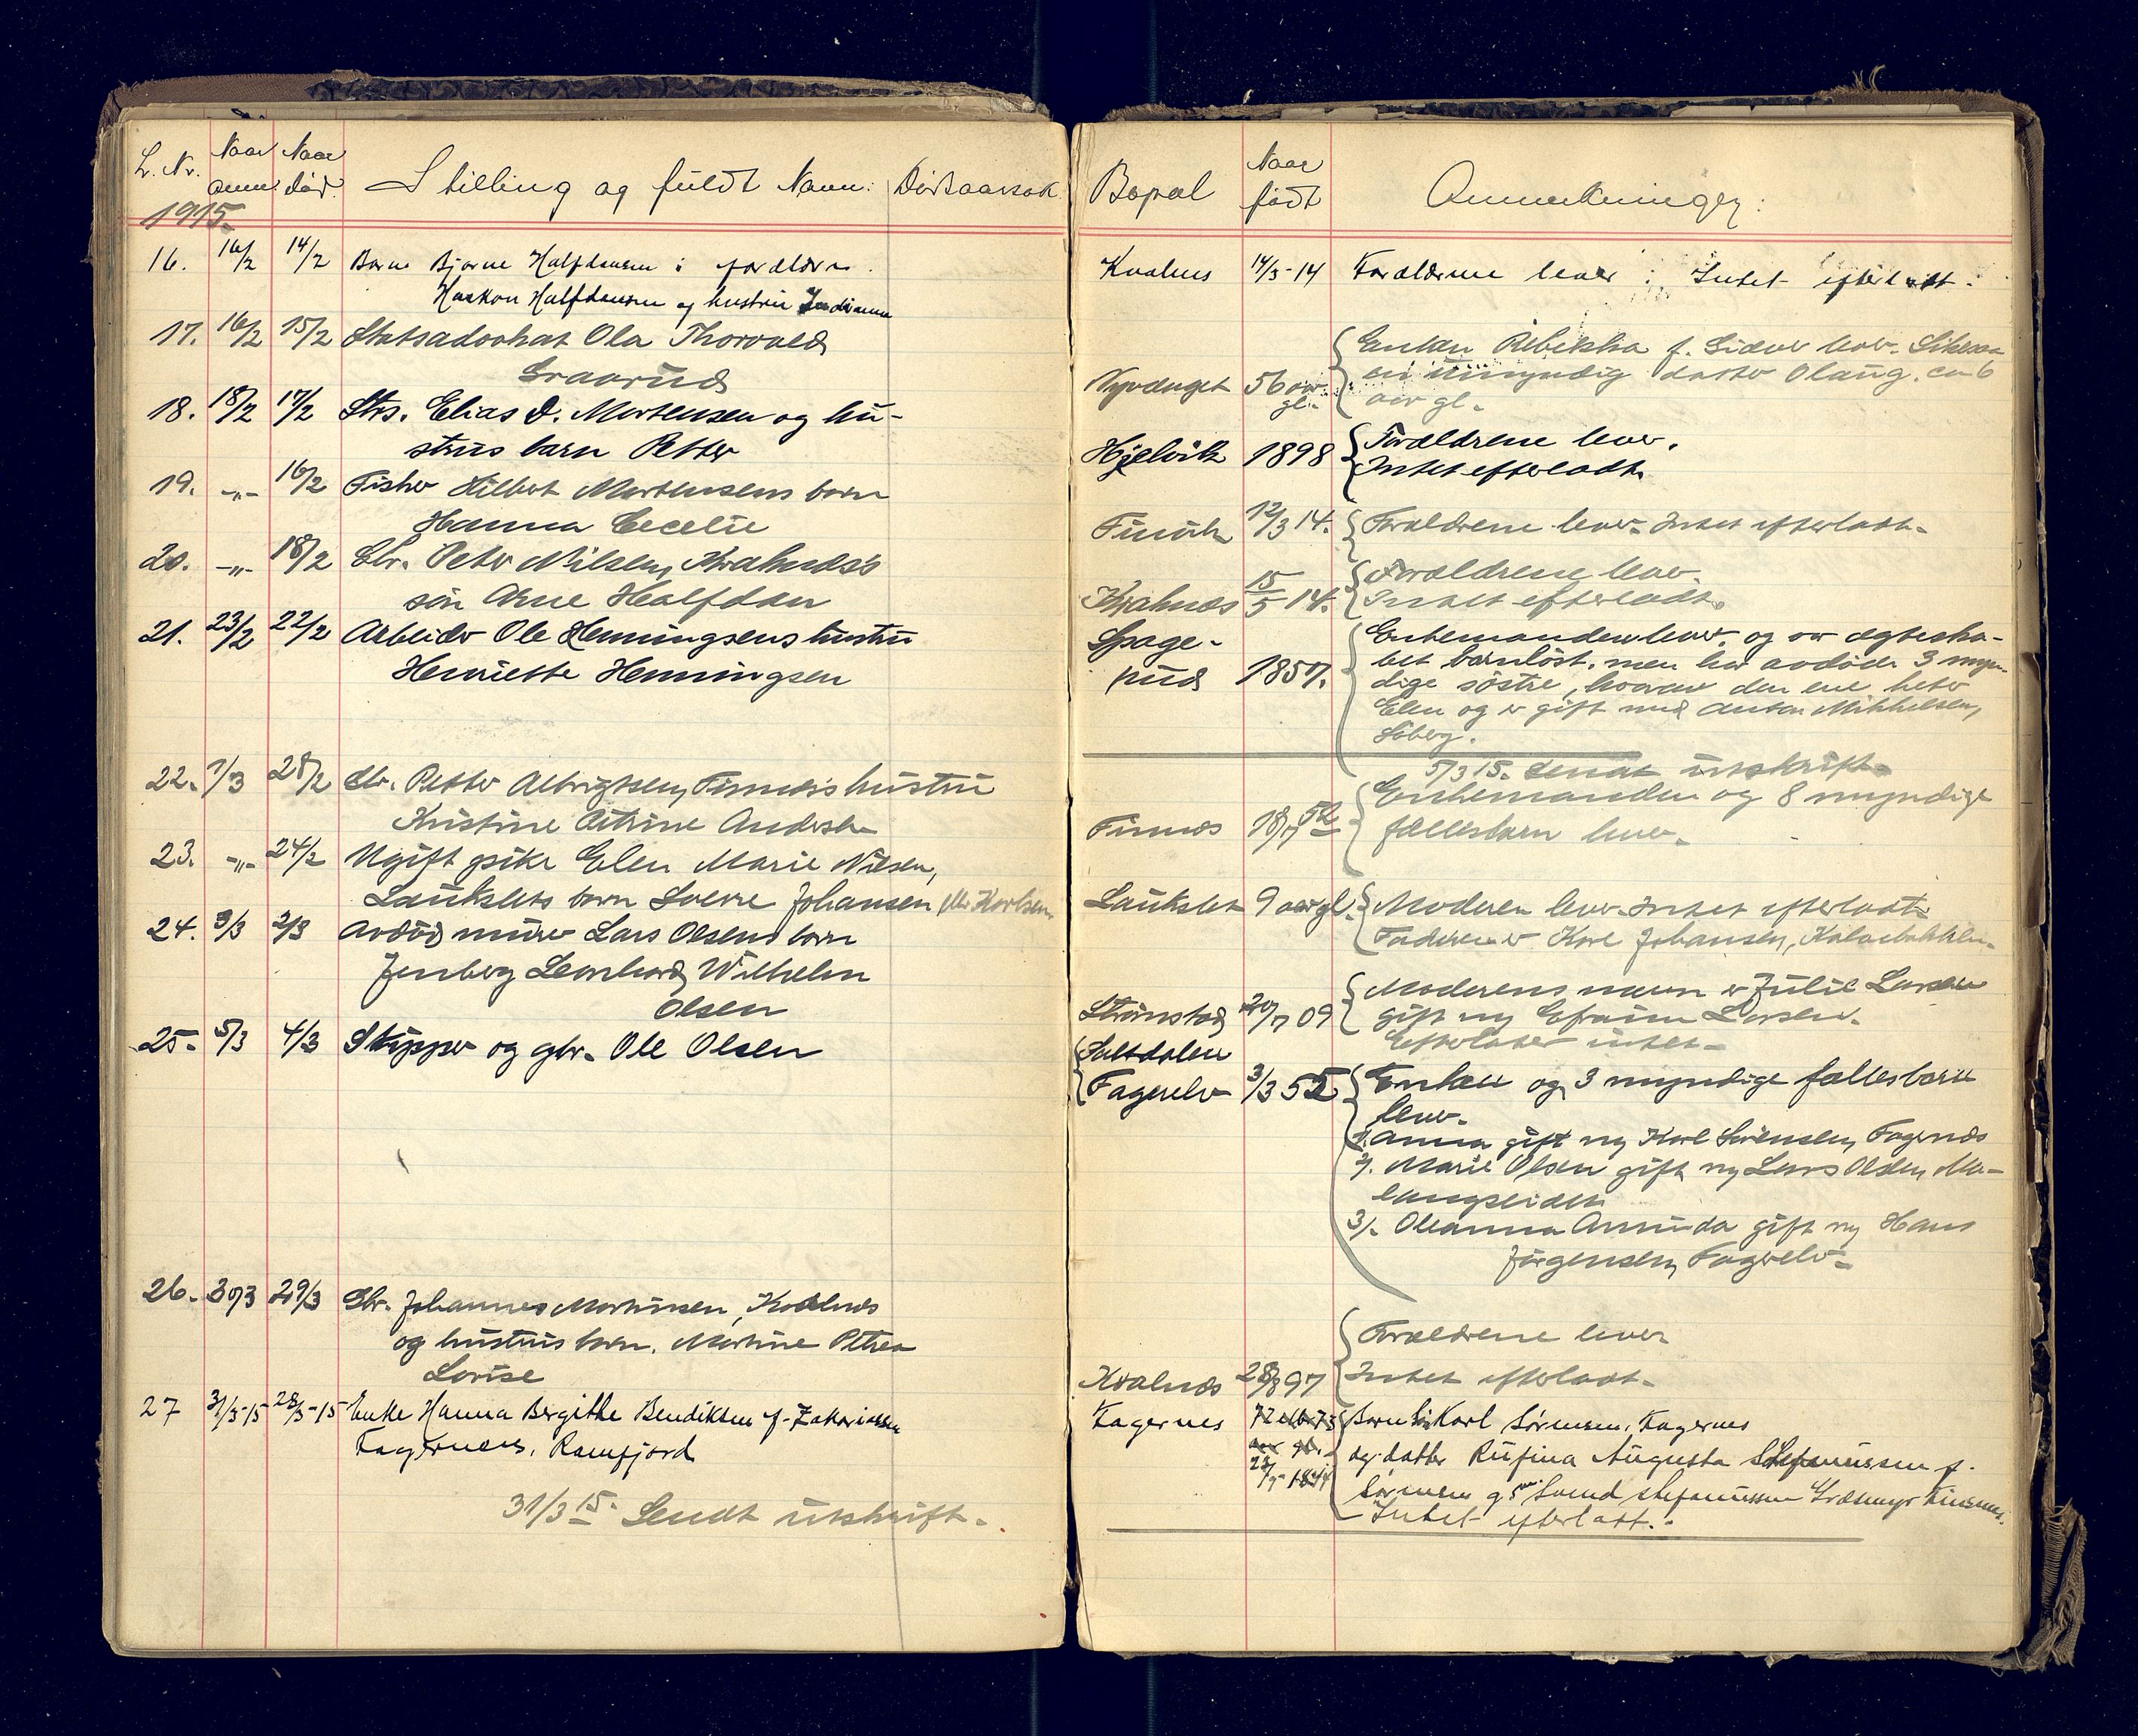 L. Nr. Naar anm. Naar død. Stilling og fuldt Navn: Dødsaarsak Bopæl Naar født Anmerkninger:
1915.
16. 16/2 14/2 Barn Bjarne Halfdansen : forældre
Haakon Halfdansen og hustru
14/3-14 Forældrene lever : Intet efterladt.
17. 16/2 15/2 Statsadvokat Ola Thorvald
Graarud
56 aar gl.
Enken Rebekka f. lever.
en umyndig datter Olaug. ca 6
aar gl.
18. 18/2 17/2 Strs. Elias D. Mortensen og hu-
strus barn Petter
Hjelvik 1898 Forældrene lever.
Intet efterladt.
19. -"- 16/2 Fisker Hilbert Mortensens barn
Hanna Cecelie
Finvik 12/3 14. Forældrene lever. Intet efterladt.
20. -"- 18/2 Gbr. Peter Nilsen, Kvalnæs's
søn Arne Halfdan
Kvalnæs 15/5 14. Forældrene lever.
Intet efterladt.
21. 23/2 22/2 Arbeider Ole Henningsens hustru
Henriette Henningsen
1857.
Enkemanden lever, og var ægteska-
bet barnløst, men har avdøde 3 myn-
dige søstre, hvorav den ene heter
Elen og er gift med Anton Mikkelsen,
5/3 15. Sendt utskrift.
22. 1/3 28/2 Gbr. Petter Albrigtsen, Finnæs's hustru
Kristine Petrine
Finnæs
Enkemanden og 8 myndige
fællesbarn lever.
23. -"- 24/2 Ugift pike Elen Marie Nilsen,
Lauksletts barn Sverre Johansen eller Karlsen
Laukslet 9 aar gl. Moderen lever. Intet efterladt.
Faderen er Karl Johansen,
24. 3/3 2/3 Avdød murer Lars Olsens barn
Jenberg Leonhard Wilhelm
Olsen
Strømstad 09
Moderens navn er Julie Larsen
gift m Efraim Larsen.
Efterlater intet.
25. 5/3 4/3 Skipper og gbr. Ole Olsen
Saltdalen
Fagerelv 3/3 55 Enken og 3 myndige fællesbarn
lever.
1. Anna gift m Karl Sørensen, Fagernæs
2. Marie Olsen gift m Lars Olsen, Ma-
langseidet
3/. Oleanna Amunda gift m Hans
Jørgensen, Fagerelv.
26. 30/3 29/3 Gbr. Johannes Martinsen, Kvalnæs
og hustrus barn. Martine Petrea
Lovise
Forældrene lever
Kvalnæs 28/8 97 Intet efterladt.
27 31/3-15 28/3-15 Enke Hanna Bergitte Bendiksen f. Zakariassen
Fagernes, Ramfjord
Fagernes 1844
Barn: Karl Sørensen, Fagernes
og datter Rufina Augusta Stefanussen f.
Sørensen Svend Stefanussen
Intet efterladt.
31/3 15. Sendt utskrift.